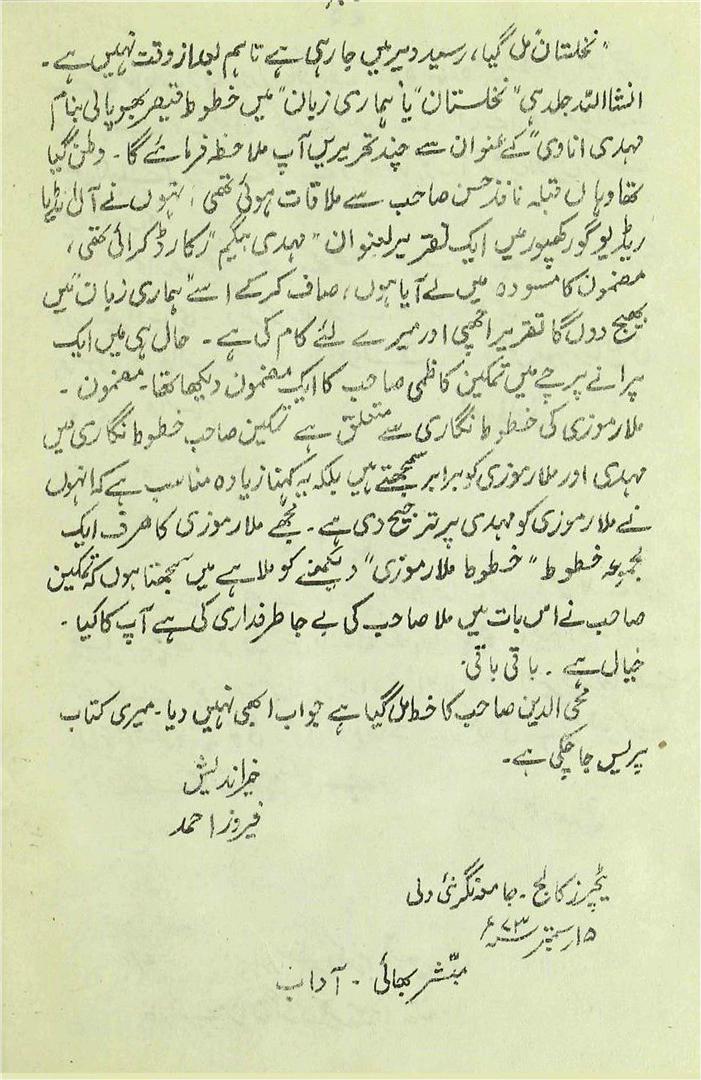 "نخلستان" مل گیا، رسید دیر میں جا رہی ہے تاہم بعد از وقت نہیں ہے۔
انشااللہ جلد ہی "نخلستان" یا "ہماری زبان" میں خطوط قیصر بھوپالی بنام
مہدی اناوی" کے عنوان سے چند تحریریں آپ ملاحظہ فرمائے گا۔ وطن گیا
تھا وہاں قبلہ نافذ حسن صاحب سے ملاقات ہوئی تھی، انہوں نے آل انڈیا
ریڈیو گورکھپور میں ایک تقریر بعنوان "مہدی بیگم" رکارڈ کرائی تھی،
مضمون کا مسودہ میں لے آیا ہوں، صاف کر کے اسے "ہماری زبان" میں
بھیج دوں گا تقریر اچھی اور میرے لئے کام کی ہے۔ حال ہی میں ایک
پرانے پرچے میں تمکین کاظمی صاحب کا ایک مضمون دیکھا تھا۔ مضمون۔
ملا رموزی کی خطوط نگاری سے متعلق ہے تمکین صاحب خطوط نگاری میں
مہدی اور ملا رموزی کو برابر سمجھتے ہیں بلکہ یہ کہنا زیادہ مناسب ہے کہ انہوں
نے ملا رموزی کو مہدی پر ترجیح دی ہے۔ مجھے ملا رموزی کا صرف ایک
مجموعہ خطوط "خطوط ملا رموزی" دیکھنے کو ملا ہے میں سمجھتا ہوں کہ تمکین
صاحب نے اس بات میں ملا صاحب کی بے جا طرفداری کی ہے آپ کا کیا۔
خیال ہے۔ باقی باقی۔
محی الدین صاحب کا خط مل گیا ہے جواب ابھی نہیں دیا۔ میری کتاب
پریس جا چکی ہے۔
خیر اندیش
فیروز احمد
ٹیچرز کالج۔ جامعہ نگر نئی دلی
۱۵ ستمبر ۷۳ء
مبشر بھائی۔ آداب